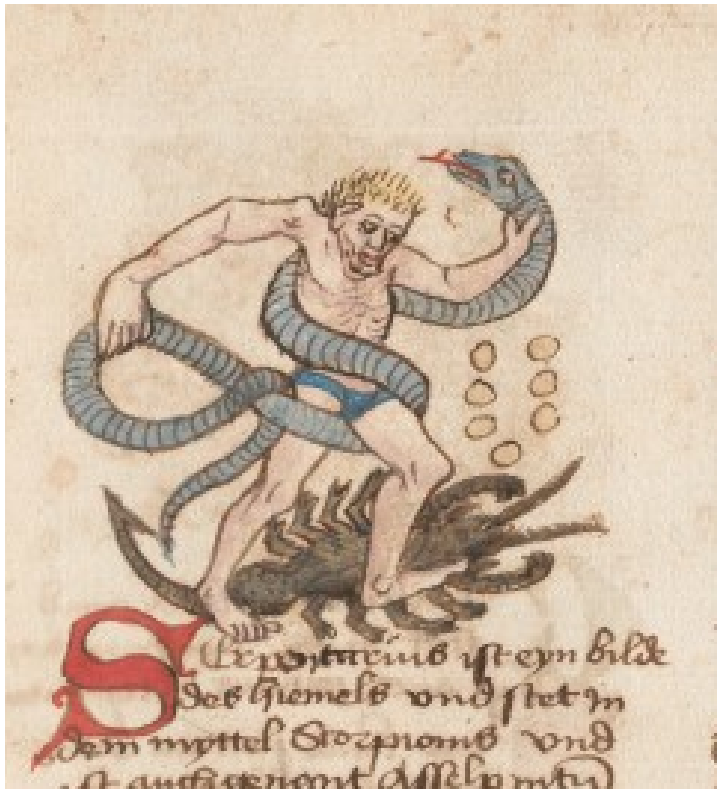 Serpentarius ist eyn bilde
des hiemels vnd stet jn
dem myttel Scorpionis vnd
ist auch genant